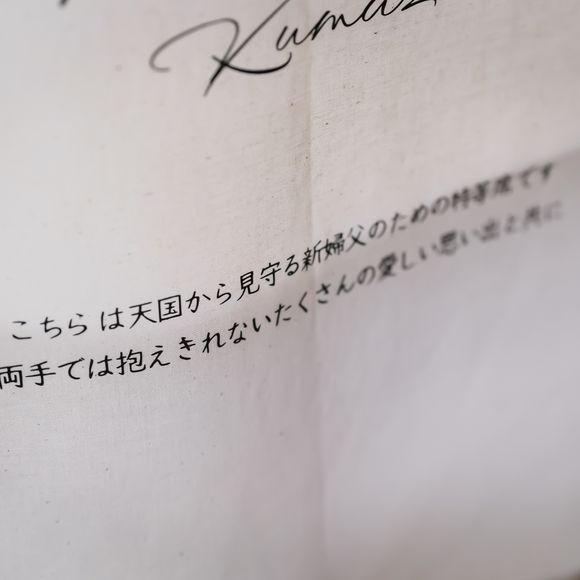 Kumaz
こちらは天国から見守る新婦父のための特等席です
両手では抱えきれないたくさんの愛しい思い出と共に